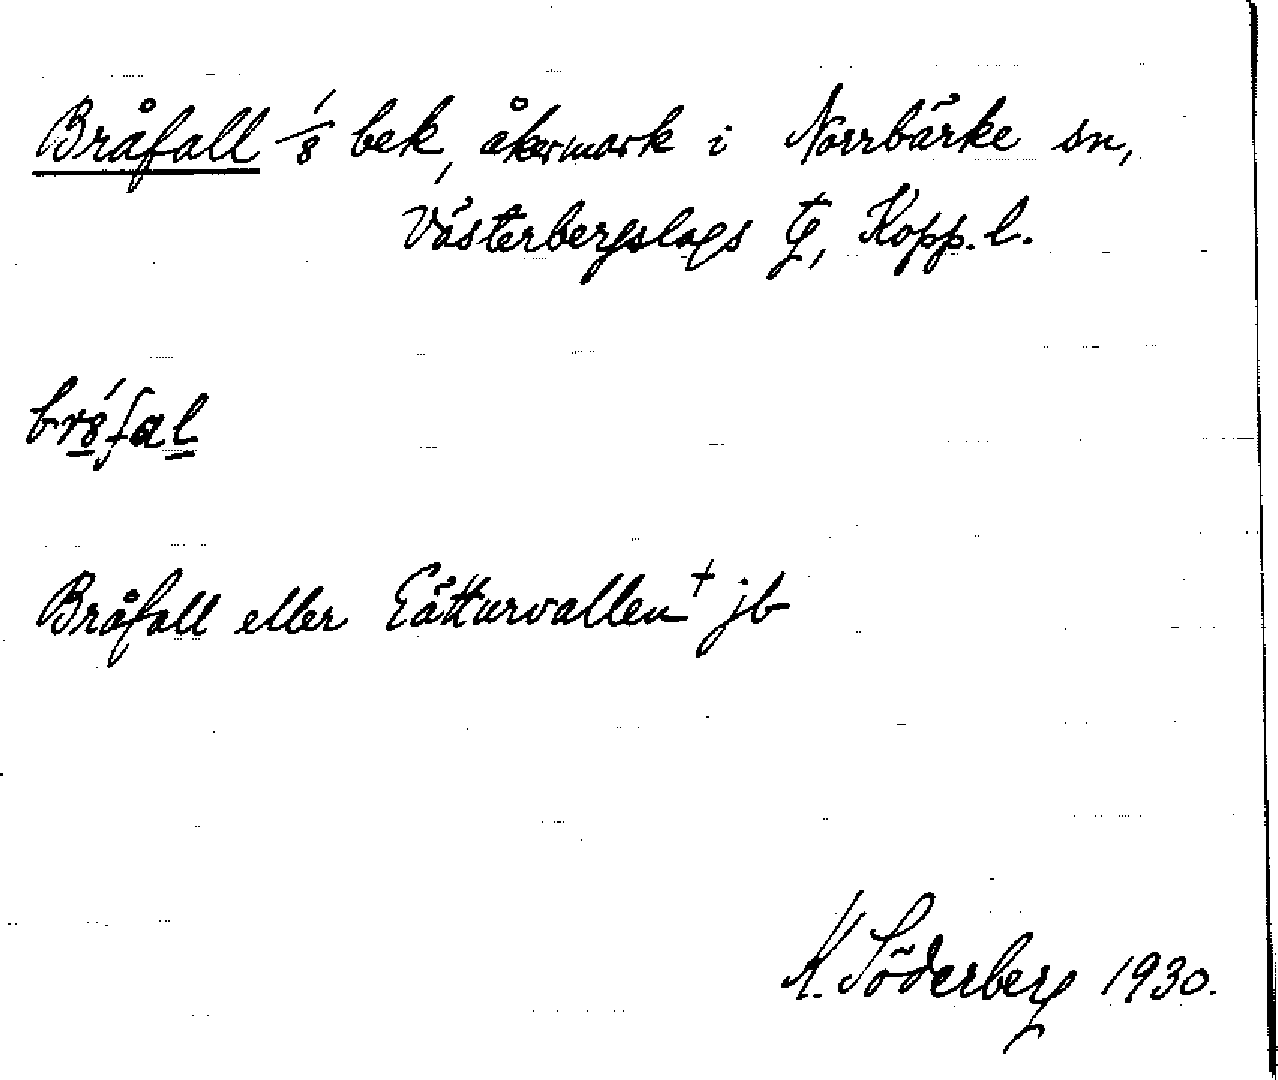 Bråfall 1/8 bek, åkermark i Norrbärke sn,
Västerbergslags tg, Kopp. l.
Bråfall eller Låtturvallen + jb
K. Söderberg 1930.